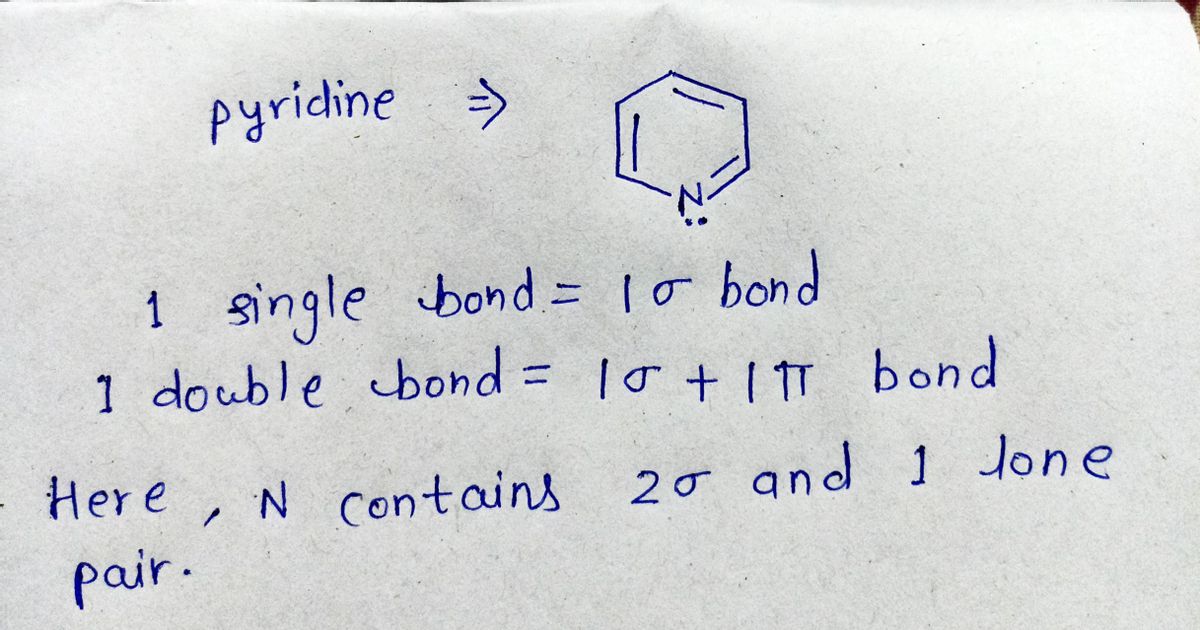 pyridine ⇒
N
1 single bond = 1σ bond
1 double bond = 1σ + 1π bond
Here, N contains 2σ and 1 lone
pair.